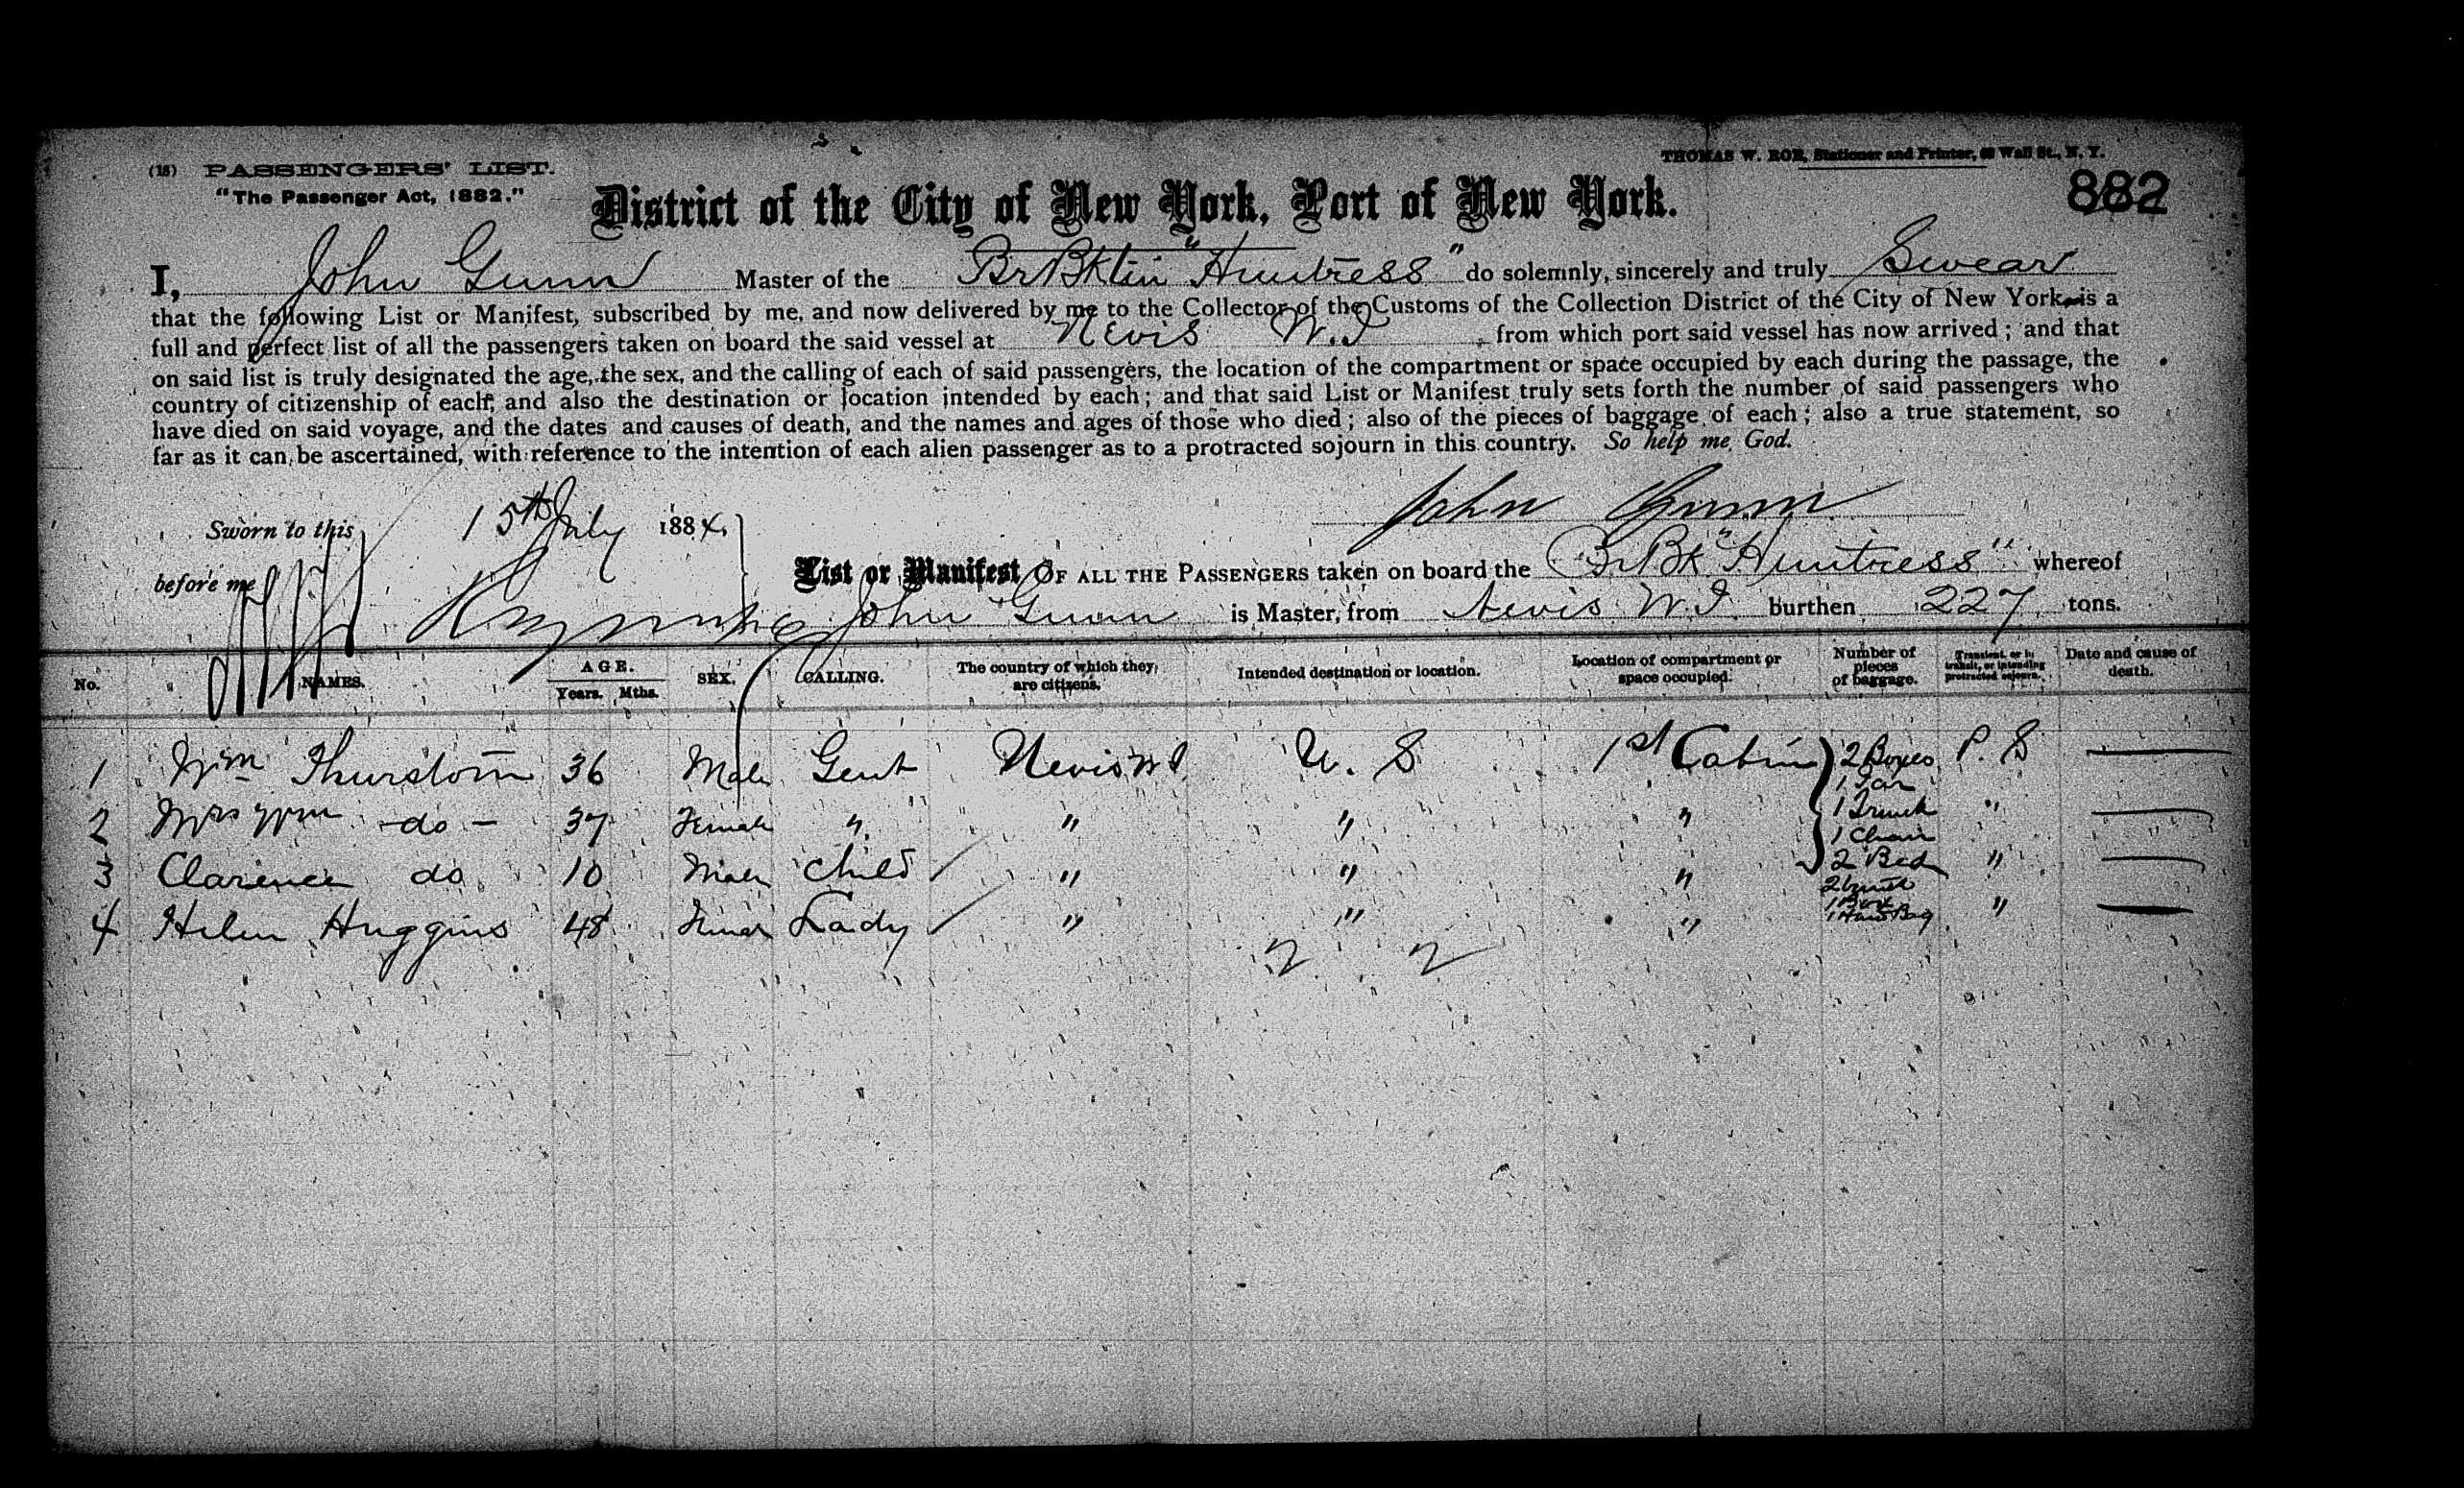 (18) PASSENGERS' LIST.
THOMAS W. ROE, Stationer and Printer, Wall St., N. Y.
"The Passenger Act, 1882."
District of the City of New York, Port of New York.
882
I, John Gunn Master of the Br Bktin "Huntress" do solemnly, sincerely and truly Swear
that the following List or Manifest, subscribed by me, and now delivered by me to the Collector of the Customs of the Collection District of the City of New York is a
full and perfect list of all the passengers taken on board the said vessel at Nevis W.I from which port said vessel has now arrived; and that
on said list is truly designated the age, the sex, and the calling of each of said passengers, the location of the compartment or space occupied by each during the passage, the
country of citizenship of each, and also the destination or location intended by each; and that said List or Manifest truly sets forth the number of said passengers who
have died on said voyage, and the dates and causes of death, and the names and ages of those who died; also of the pieces of baggage of each; also a true statement, so
far as it can be ascertained, with reference to the intention of each alien passenger as to a protracted sojourn in this country. So help me God.
John Gunn
Sworn to this 15th July 1884.
before me
List or Manifest OF ALL THE PASSENGERS taken on board the Br Bk "Huntress" whereof
John Gunn is Master, from Nevis W.I burthen 227 tons.
No. NAMES. AGE. Years. Mths. SEX. CALLING. The country of which they are citizens. Intended destination or location. Location of compartment or space occupied. Number of pieces of baggage. Transient, or in transit, or intending protracted sojourn. Date and cause of death.
1 Wm Thurston 36 Male Gent Nevis W I U. S 1st Cabin 2 Boxes P. S —
1 Jar
2 Mrs Wm -do- 37 Female " " " " 1 Trunk " —
1 Chair
3 Clarence do 10 Male Child " " " 2 Bed " —
4 Helen Huggins 48 Lady " " " 1 Box " —
1 Hand Bag